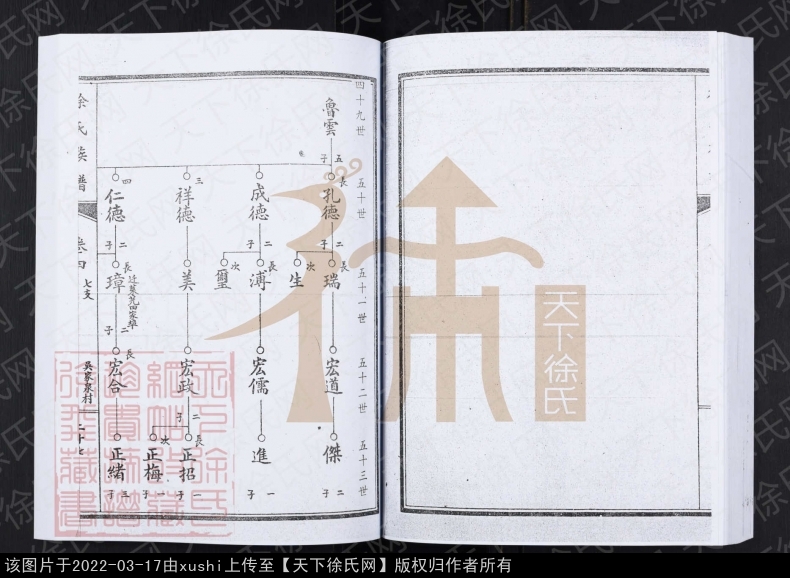 四十九世
魯雲
五子
五十世
長
孔德
二子
成德
二子
三
祥德
四
仁德
二子
五十一世
長
瑞
次
生
長
溥
次
璽
美
長
璋
二子
五十二世
宏道
宏儒
宏政
二子
長
宏合
五十三世
傑
二子
進
一子
長
正招
一子
次
正梅
一子
正緒
三子
徐氏族譜
卷四
七支
吳家泉村
二十七
天下徐氏
该图片于2022-03-17由xushi上传至【天下徐氏网】版权归作者所有